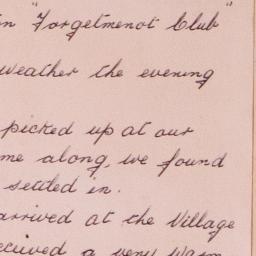 in "Forgetmenot Club"
weather the evening
picked up at our
me along, we found
settled in.
arrived at the Village
eceived a very warm